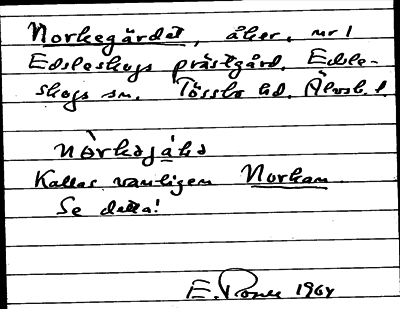 Norkegärdet, åker, nr 1
Edsleskogs prästgård, Edsle-
skogs sn. Tössbo hd. Älvsb. l.
nòrkəjáḷə
Kallas vanligen Norkan
Se detta!
E. 1964